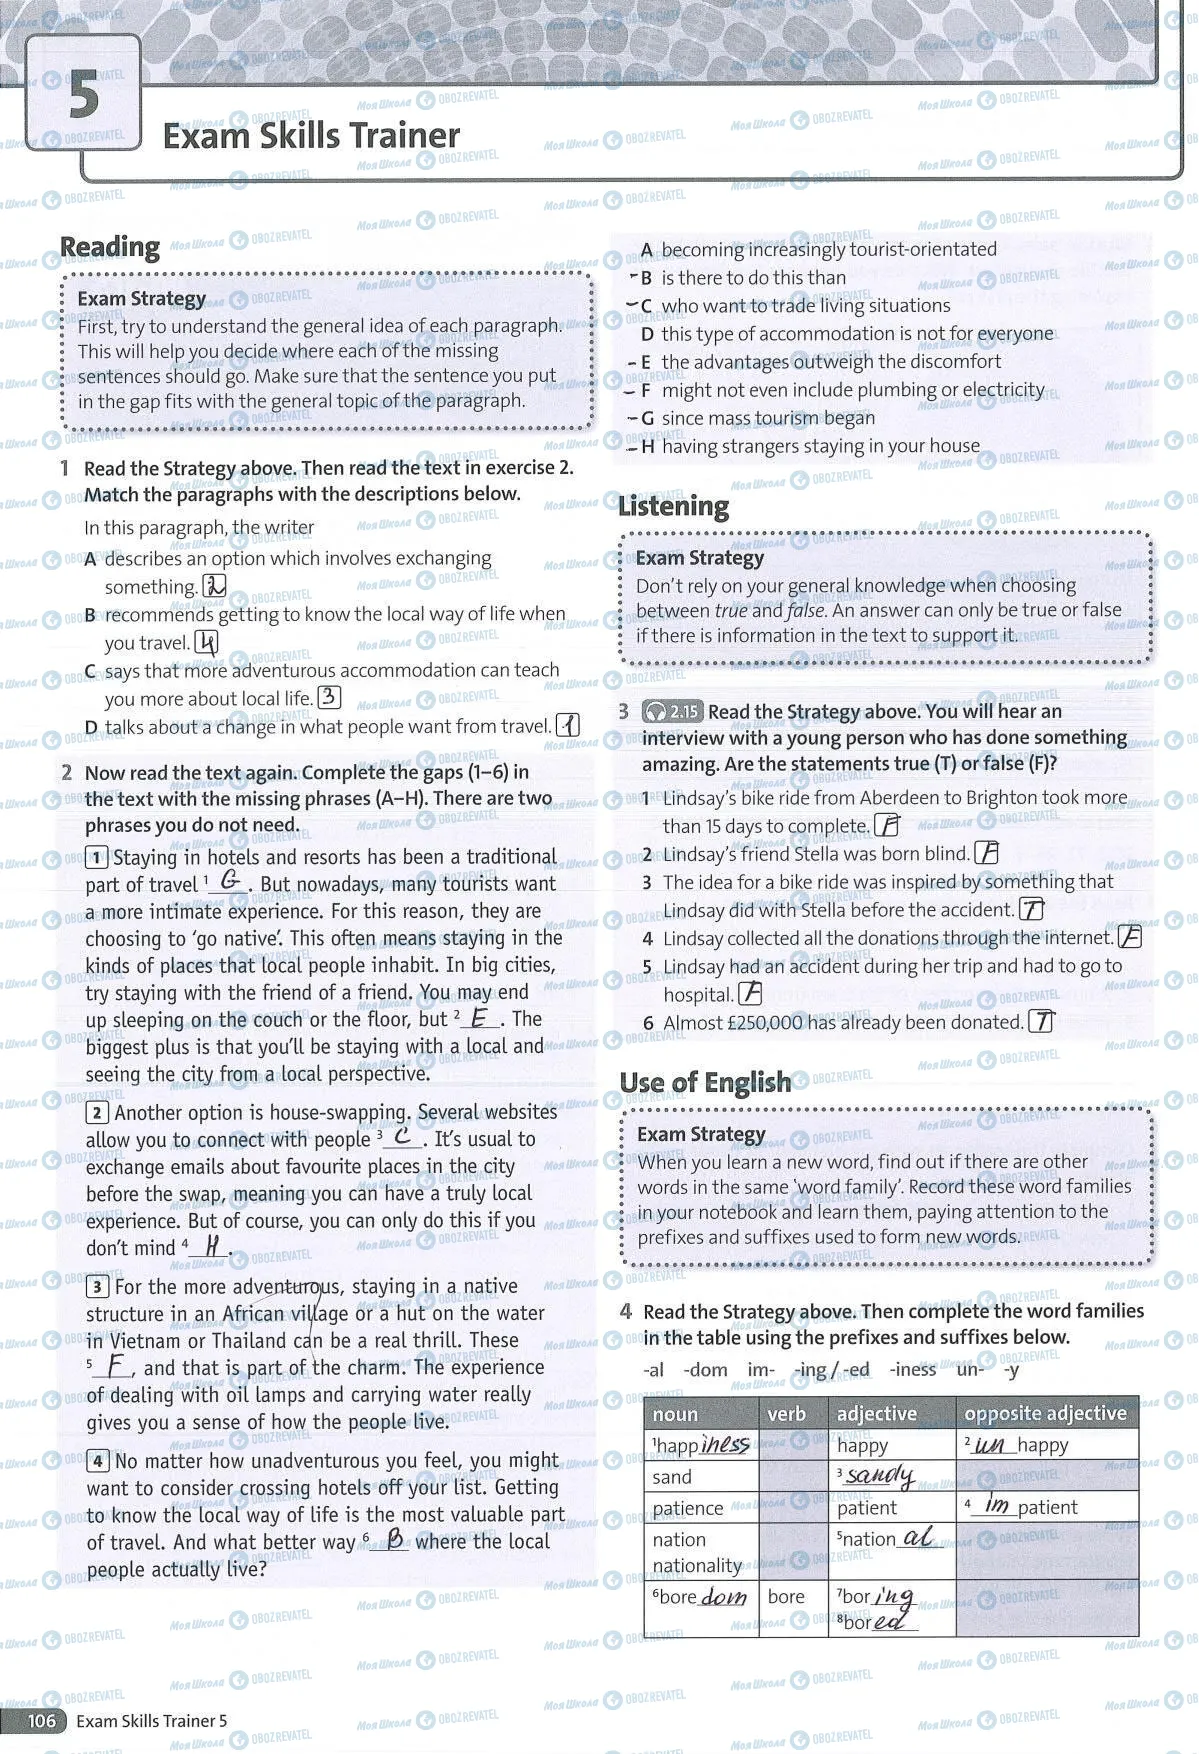 5
Exam Skills Trainer
Reading
Exam Strategy
First, try to understand the general idea of each paragraph.
This will help you decide where each of the missing
sentences should go. Make sure that the sentence you put
in the gap fits with the general topic of the paragraph.
1 Read the Strategy above. Then read the text in exercise 2.
Match the paragraphs with the descriptions below.
In this paragraph, the writer
A describes an option which involves exchanging
something. 2
B recommends getting to know the local way of life when
you travel. 4
C says that more adventurous accommodation can teach
you more about local life. 3
D talks about a change in what people want from travel. 1
2 Now read the text again. Complete the gaps (1–6) in
the text with the missing phrases (A–H). There are two
phrases you do not need.
1 Staying in hotels and resorts has been a traditional
part of travel ¹ G . But nowadays, many tourists want
a more intimate experience. For this reason, they are
choosing to ‘go native’. This often means staying in the
kinds of places that local people inhabit. In big cities,
try staying with the friend of a friend. You may end
up sleeping on the couch or the floor, but ² E . The
biggest plus is that you’ll be staying with a local and
seeing the city from a local perspective.
2 Another option is house-swapping. Several websites
allow you to connect with people ³ C . It’s usual to
exchange emails about favourite places in the city
before the swap, meaning you can have a truly local
experience. But of course, you can only do this if you
don’t mind ⁴ H .
3 For the more adventurous, staying in a native
structure in an African village or a hut on the water
in Vietnam or Thailand can be a real thrill. These
⁵ F , and that is part of the charm. The experience
of dealing with oil lamps and carrying water really
gives you a sense of how the people live.
4 No matter how unadventurous you feel, you might
want to consider crossing hotels off your list. Getting
to know the local way of life is the most valuable part
of travel. And what better way ⁶ B where the local
people actually live?
A becoming increasingly tourist-orientated
- B is there to do this than
- C who want to trade living situations
D this type of accommodation is not for everyone
- E the advantages outweigh the discomfort
- F might not even include plumbing or electricity
- G since mass tourism began
- H having strangers staying in your house
Listening
Exam Strategy
Don’t rely on your general knowledge when choosing
between true and false. An answer can only be true or false
if there is information in the text to support it.
3 2.15 Read the Strategy above. You will hear an
interview with a young person who has done something
amazing. Are the statements true (T) or false (F)?
1 Lindsay’s bike ride from Aberdeen to Brighton took more
than 15 days to complete. F
2 Lindsay’s friend Stella was born blind. F
3 The idea for a bike ride was inspired by something that
Lindsay did with Stella before the accident. T
4 Lindsay collected all the donations through the internet. F
5 Lindsay had an accident during her trip and had to go to
hospital. F
6 Almost £250,000 has already been donated. T
Use of English
Exam Strategy
When you learn a new word, find out if there are other
words in the same ‘word family’. Record these word families
in your notebook and learn them, paying attention to the
prefixes and suffixes used to form new words.
4 Read the Strategy above. Then complete the word families
in the table using the prefixes and suffixes below.
-al -dom im- -ing / -ed -iness un- -y
noun verb adjective opposite adjective
¹happiness happy ² un happy
sand ³ sandy
patience patient ⁴ im patient
nation ⁵national
nationality
⁶boredom bore ⁷boring
⁸bored
106 Exam Skills Trainer 5
Моя Школа OBOZREVATEL